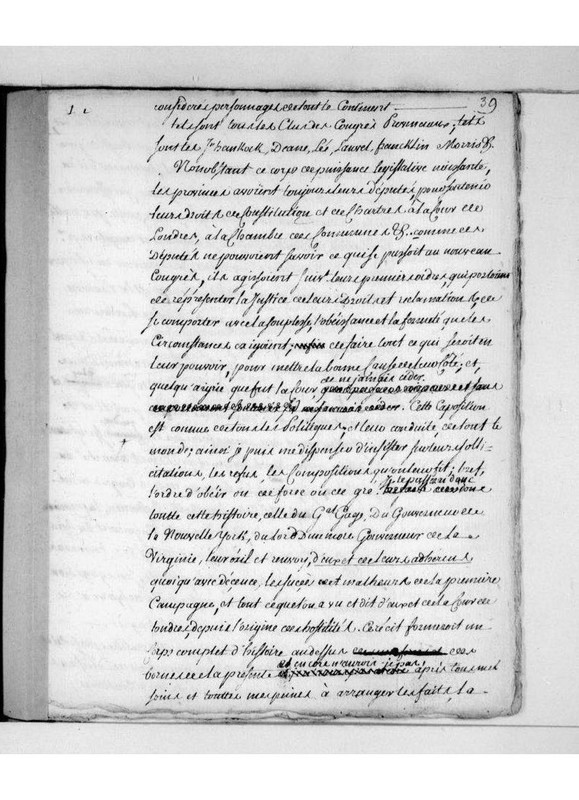 39
considerés personnages de tout le Continent
tels sont tous les Clus des Congrès Provinciaux, tels
sont les Jn hankock, Deane, Lée, Laurel, francklin Morris &.
Nonobstant ce corps de puissance legislative naissante,
les provinces avoient toujours leurs députés pour soutenir
leurs droits de Constitution et de Chartres à la Cour de
Londres, à la Chambre des Communes &. comme ces
Députés ne pouvoient savoir ce qui se passoit au nouveau
Congrès, ils agissoient suivt. leurs premiers ordres, qui portoient
de représenter la Justice de leurs droits et réclamations, de
se comporter avec la souplesse l'obéissance et la fermeté que les
Circonstances exigoient, de faire tout ce qui seroit en
leur pouvoir, pour mettre la bonne cause de leur Côté, et
de ne jamais céder.
quelqu'aigrie que fut la Cour,
Cette Exposition
est connue de tous les Politiques, et leur conduite, de tout le
monde; ainsi je puis me dispenser d'insister sur leurs solli-
citations, les refus, les Compositions qu'on leur fit; bref,
je le puis san donc
l'ordre d'obéir ou de force ou de gré.
toutte cette histoire, celle du Gal Gage, Du Gouverneur de
la Nouvelle York, du Lord Dunmore Gouverneur de la
Virginie, leur exil et renvoi, d'eux et de leurs adhérens
quoiqu'avec décence, les succès et malheurs de la première
Campagne, et tout ce que l'on a vu et dit d'eux et de la Cour de
Londres, depuis l'origine des hostilités. Ce récit formeroit un
corps complet d'histoire au dessus des
et encore n'aurois je pas,
bornes de la présente après tous mes
soins et touttes mes peines à arranger les faits, la